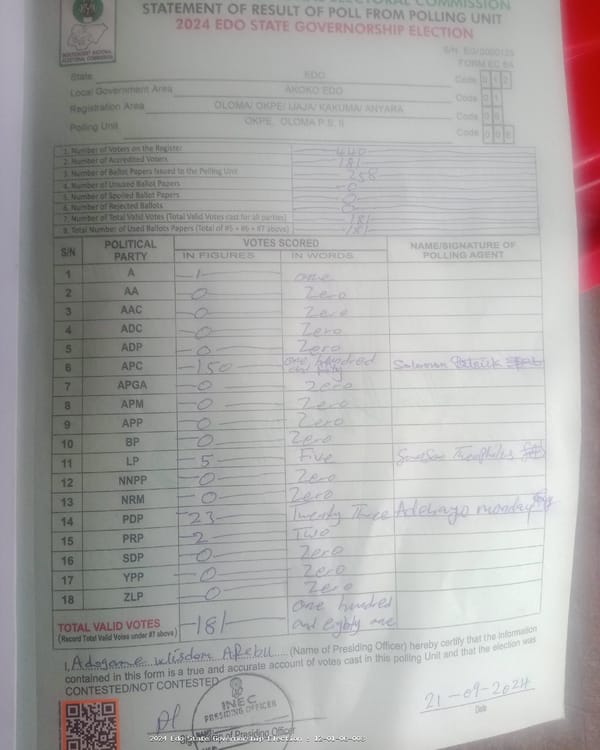 ELECTORAL COMMISSION
STATEMENT OF RESULT OF POLL FROM POLLING UNIT
2024 EDO STATE GOVERNORSHIP ELECTION
INDEPENDENT NATIONAL ELECTORAL COMMISSION
FORM EC 8A
State EDO Code 0 1 2
Local Government Area AKOKO EDO Code 0 1
Registration Area OLOMA/ OKPE/ IJAJA/ KAKUMA/ ANYARA Code 0 6
Polling Unit OKPE, OLOMA P.S. II Code 0 0 8
1. Number of Voters on the Register 440
2. Number of Accredited Voters 181
3. Number of Ballot Papers Issued to the Polling Unit 258
4. Number of Unused Ballot Papers 0
5. Number of Spoiled Ballot Papers 0
6. Number of Rejected Ballots 0
7. Number of Total Valid Votes (Total Valid Votes cast for all parties) 181
8. Total Number of Used Ballots Papers (Total of #5 + #6 + #7 above) 181
S/N POLITICAL PARTY VOTES SCORED NAME/SIGNATURE OF POLLING AGENT
IN FIGURES IN WORDS
1 A 1 one
2 AA 0 Zero
3 AAC 0 Zero
4 ADC 0 Zero
5 ADP 0 Zero
6 APC 150 one hundred and fifty Solomon Patrick
7 APGA 0 Zero
8 APM 0 Zero
9 APP 0 Zero
10 BP 0 Zero
11 LP 5 Five Theophilus
12 NNPP 0 Zero
13 NRM 0 Zero
14 PDP 23 Twenty Three Adebayo monday
15 PRP 2 Two
16 SDP 0 Zero
17 YPP 0 Zero
18 ZLP 0 Zero
TOTAL VALID VOTES 181 one hundred and eighty one
(Record Total Valid Votes under #7 above)
I, Adogame Wisdom Arebu (Name of Presiding Officer) hereby certify that the information
contained in this form is a true and accurate account of votes cast in this polling Unit and that the election was
CONTESTED/NOT CONTESTED
INEC
PRESIDING OFFICER
Signature of Presiding Officer
21-09-2024
Date
2024 Edo State Governorship Election - 12-01-06-008